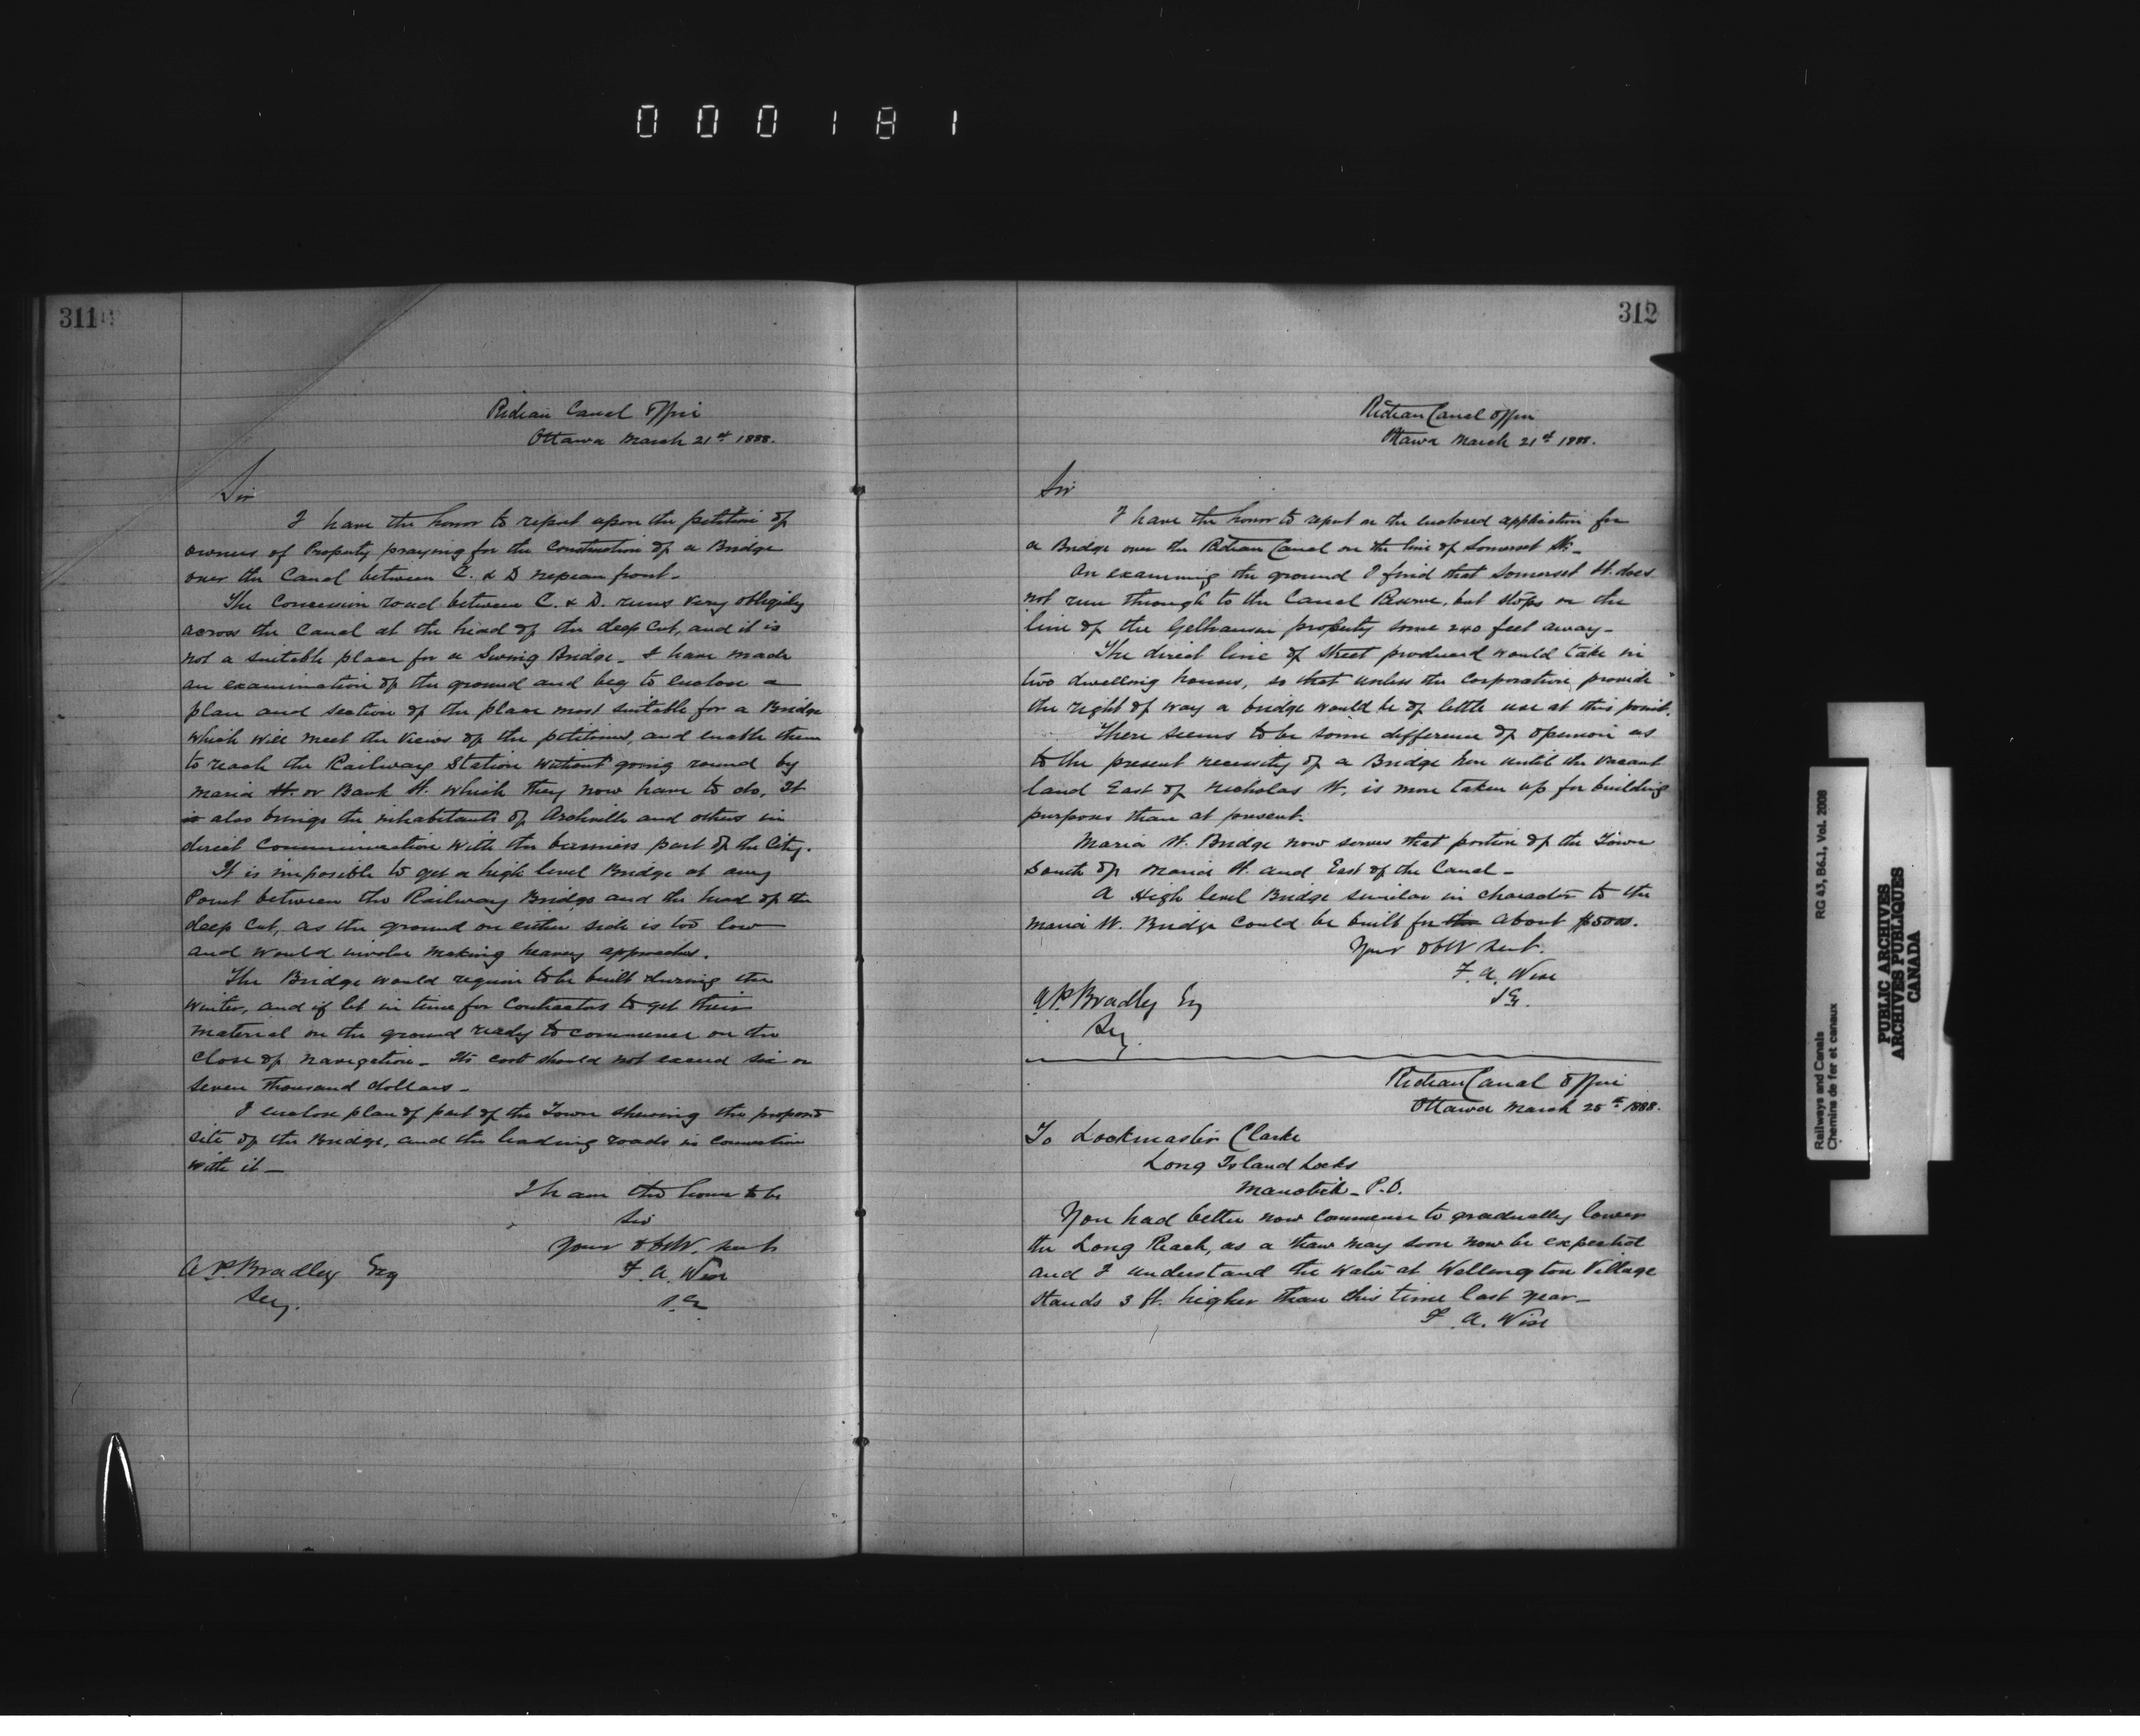 000181
311
Rideau Canal Office
Ottawa March 21st 1888.
Sir
I have the honor to report upon the petition of
owners of Property praying for the Construction of a Bridge
over the Canal between C. & D Nepean front.
The Concession road between C. & D. runs very obliquely
across the Canal at the head of the deep Cut, and it is
not a suitable place for a Swing Bridge. I have made
an examination of the ground and beg to enclose a
plan and section of the place most suitable for a Bridge
which will meet the views of the petitioners, and enable them
to reach the Railway Station without going round by
Maria St. or Bank St. which they now have to do. It
is also brings the inhabitants of Archville and others in
direct Communication with the business part of the City.
It is impossible to get a high level Bridge at any
Point between the Railway Bridge and the head of the
deep Cut, as the ground on either side is too low
and would involve making heavy approaches.
The Bridge would require to be built during the
winter, and if let in time for Contractors to get their
material on the ground ready to commence on the
close of navigation. Its cost should not exceed six or
seven thousand dollars.
I enclose plan of part of the Town shewing the proposed
site of the Bridge, and the leading roads in connection
with it.
I have the honor to be
Sir
Your Obt. Servt
F. A. Wise
S.E.
A.P. Bradley Esq
Secy.
312
Rideau Canal Office
Ottawa March 21st 1888.
Sir
I have the honor to report on the enclosed application for
a Bridge over the Rideau Canal on the line of Somerset St.
On examining the ground I find that Somerset St. does
not run through to the Canal Reserve, but stops on the
line of the Gelhausen property some 240 feet away.
The direct line of Street produced would take in
two dwelling houses, so that unless the Corporation provide
the right of way a bridge would be of little use at this point.
There seems to be some difference of opinion as
to the present necessity of a Bridge here until the vacant
land East of Nicholas St. is more taken up for building
purposes than at present.
Maria St. Bridge now serves that portion of the Town
South of Maria St. and East of the Canal.
A High level Bridge similar in character to the
Maria St. Bridge Could be built for the about $5000.
Your Obt Servt.
F. A. Wise
S.E.
A.P. Bradley Esq
Secy.
Rideau Canal Office
Ottawa March 25th 1888.
To Lockmaster Clarke
Long Island Locks
Manotick P.O.
You had better now commence to gradually lower
the Long Reach, as a thaw may soon now be expected
and I understand the water at Wellington Village
stands 3 ft. higher than this time last year.
F. A. Wise
Railways and Canals
Chemins de fer et canaux
RG 43, B6.1, Vol. 2008
PUBLIC ARCHIVES
ARCHIVES PUBLIQUES
CANADA